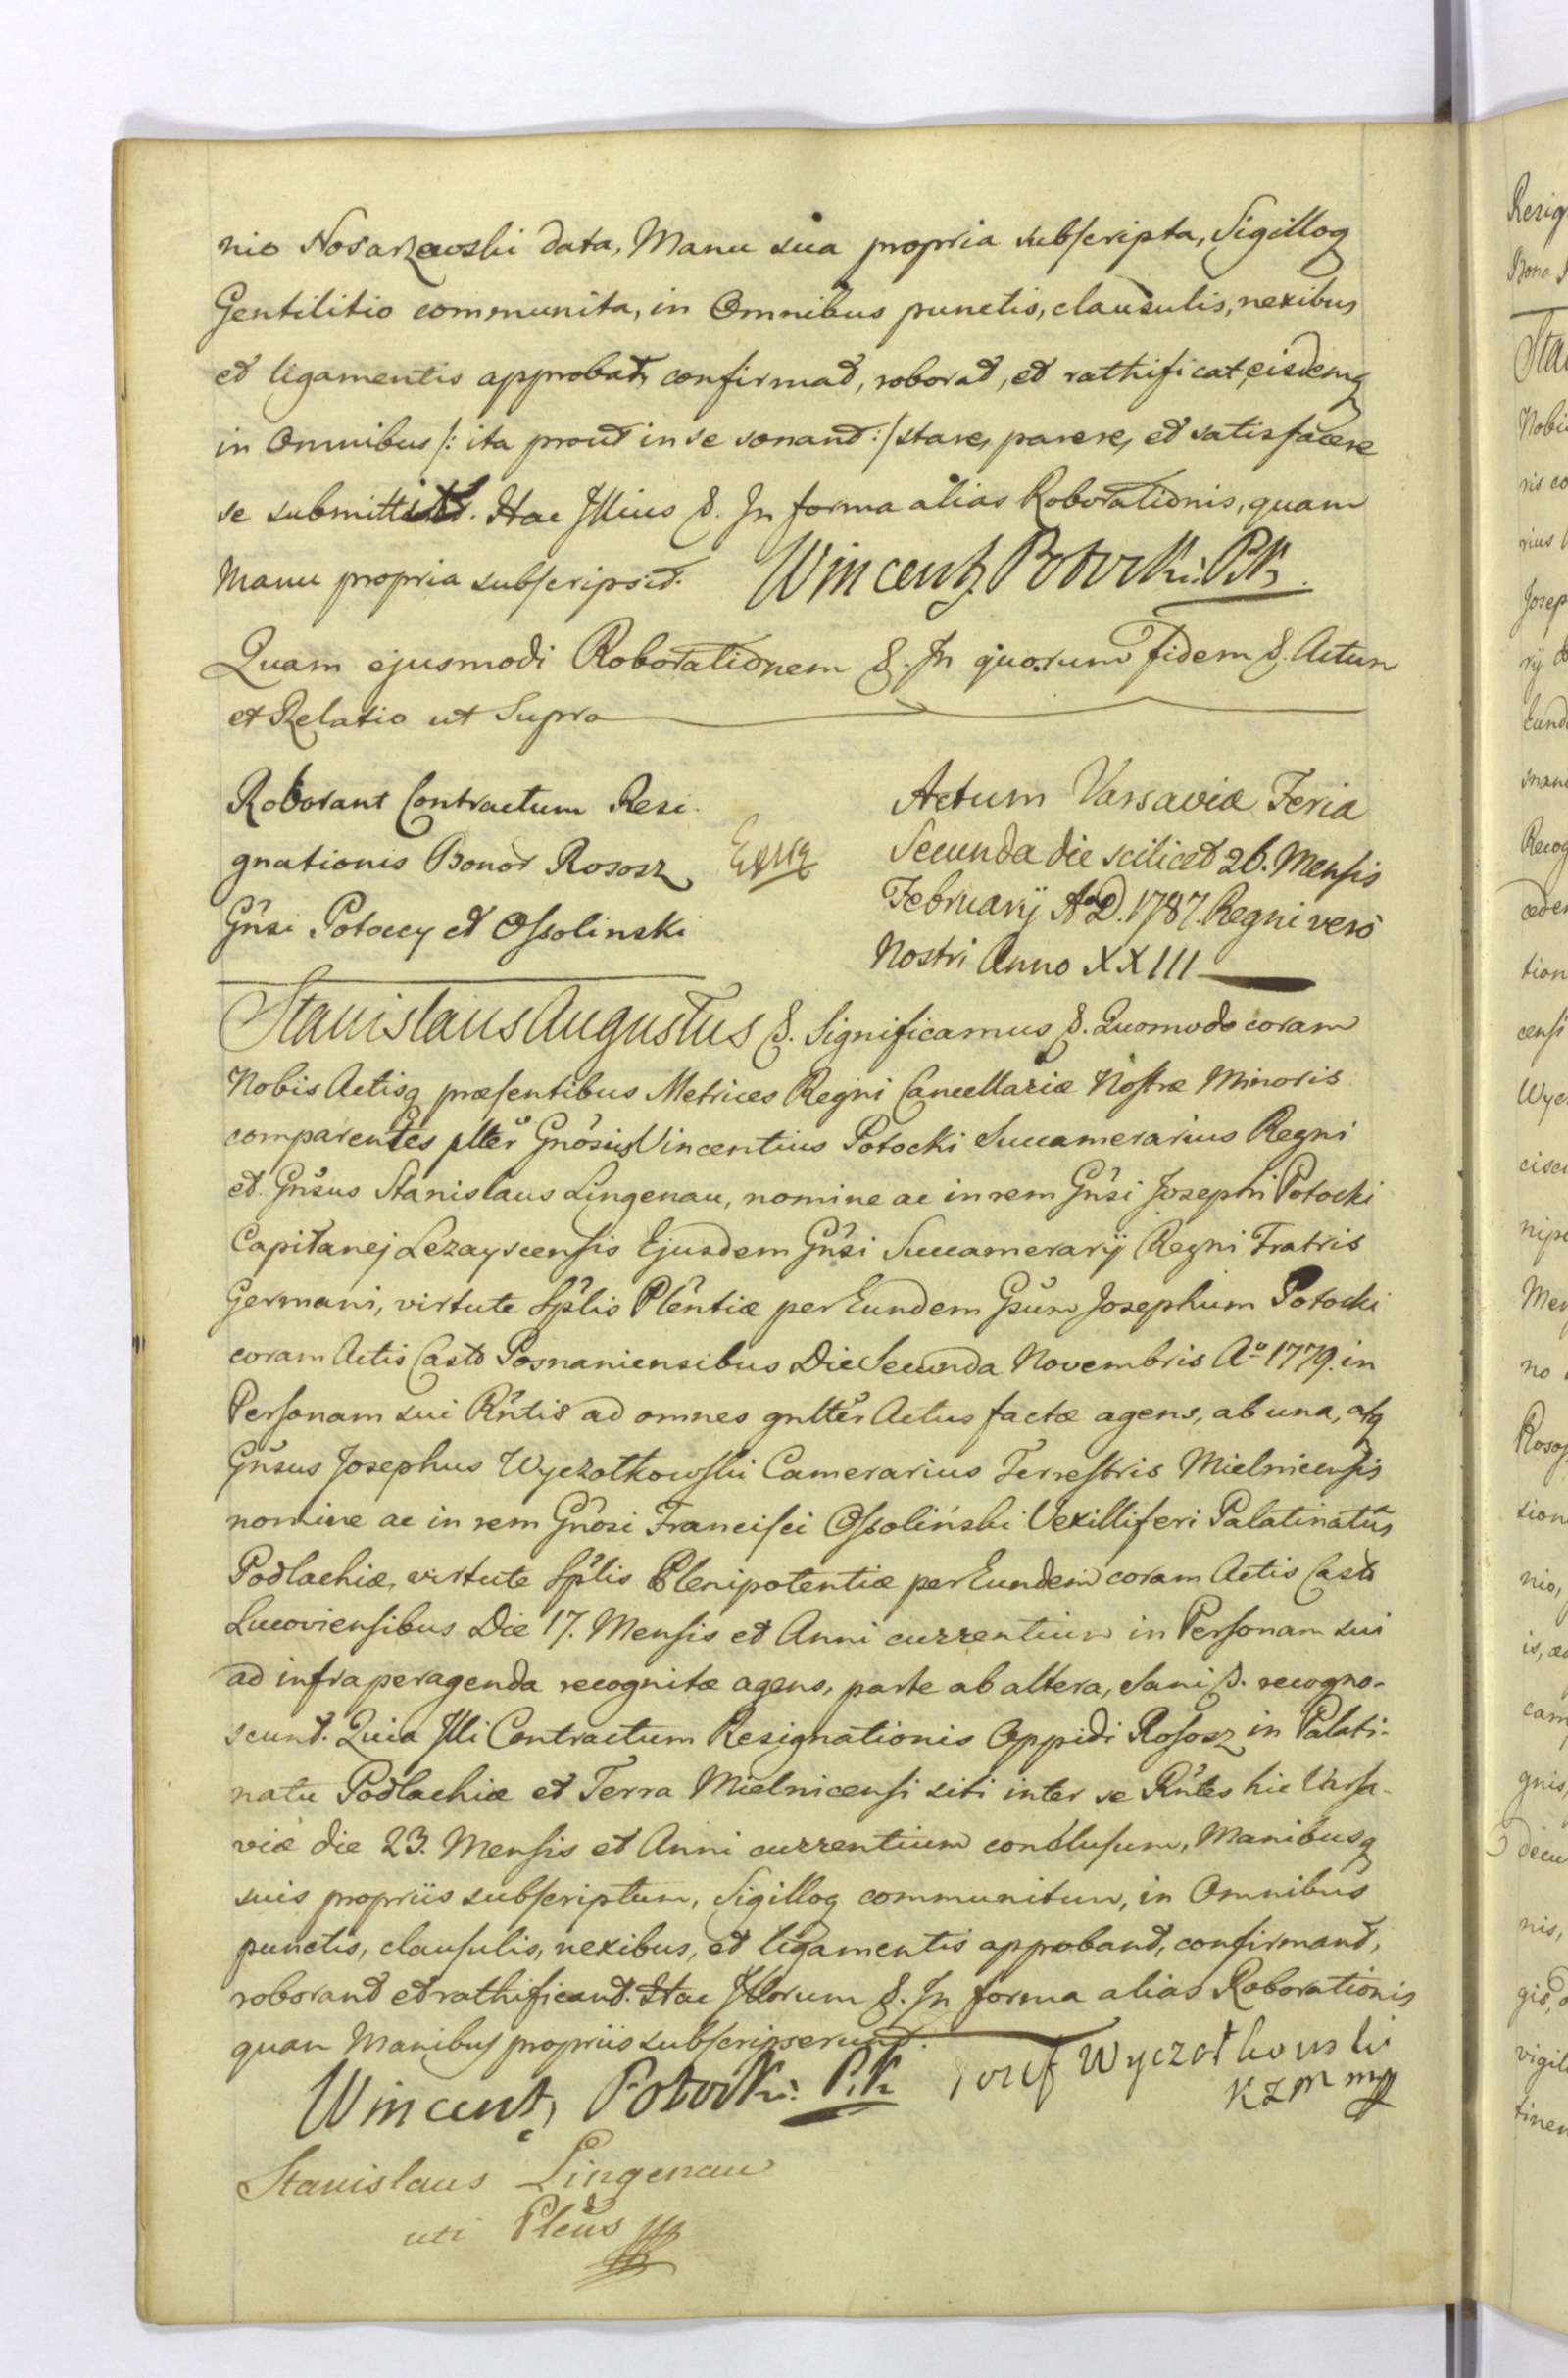 nio Nosarzewski data, Manu sua propria subscripta, Sigilloq
Gentilitio communita, in Omnibus punctis, clausulis, nexibus
et ligamentis approbat, confirmat, roborat, et rathificat, eisdemq
in Omnibus /: ita prout in se sonant :/ stare, parere, et satisfacere
se submittit. Hac Illius &. In forma alias Roborationis, quam
Manu propria subscripsit. Wincenty Potocki: P.K.
Quam ejusmodi Roborationem &. In quorum Fidem &. Actum
et Relatio ut Supra
Roborant Contractum Resi-
gnationis Bonor Rososz
Gnsi Potoccy et Ossolinski
Actum Varsaviæ Feria
Secunda die scilicet 26. Mensis
Februarij A.D. 1787. Regni vero
Nostri Anno XXIII
Stanislaus Augustus &. Significamus &. Quomodo coram
Nobis Actisq præsentibus Metrices Regni Cancellariæ Nostræ Minoris
comparentes plter Gnosus Vincentius Potocki Succamerarius Regni
et Gnsus Stanislaus Lingenau, nomine ac in rem Gnsi Josephi Potocki
Capitanej Lezayscensis Ejusdem Gnsi Succamerarij Regni Fratris
Germani, virtute Splis Plentiæ per Eundem Gsum Josephum Potocki
coram Actis Castr Posnaniensibus Die Secunda Novembris Ao 1779. in
Personam sui Rntis ad omnes gnlter Actus factæ agens, ab una, atq
Gnsus Josephus Wyczołkowski Camerarius Terrestris Mielnicensis
nomine ac in rem Gnosi Francisci Ossoliński Vexilliferi Palatinatus
Podlachiæ, virtute Splis Plenipotentiæ per Eundem coram Actis Castr
Lucoviensibus Die 17. Mensis et Anni currentium in Personam sui
ad infra peragenda recognitæ agens, parte ab altera, Sani &. recogno-
scunt. Quia Illi Contractum Resignationis Oppidi Rososz in Palati-
natu Podlachiæ et Terra Mielnicensi siti inter se Rntes hic Varsa-
viæ die 23. Mensis et Anni currentium conclusum, Manibusq
suis propriis subscriptum, Sigilloq communitum, in Omnibus
punctis, clausulis, nexibus, et ligamentis approbant, confirmant,
roborant et rathificant. Hac Illorum &. In forma alias Roborationis
quam Manibus propriis subscripserunt.
Wincenty Potocki: P.K. Jozef Wyczołkowski
KZM mp
Stanislaus Lingenau
uti Plenus mp